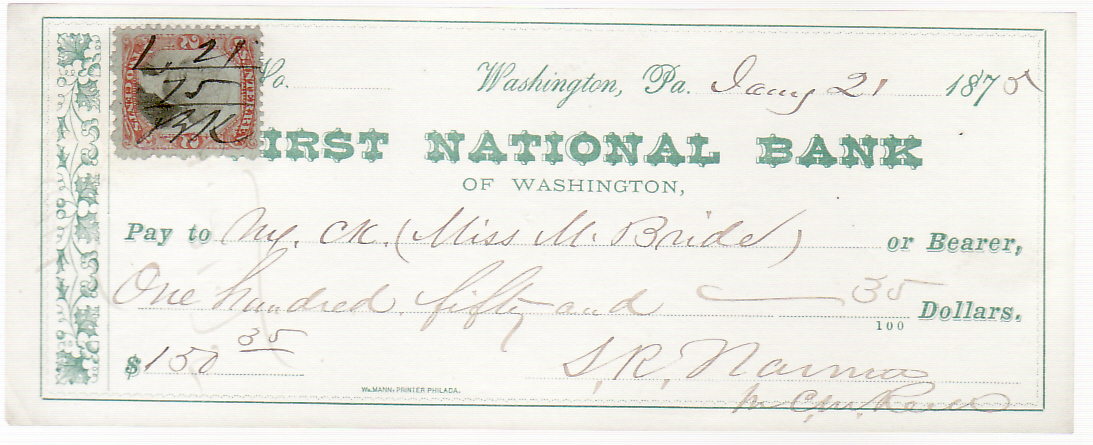 1. 21
75
No.
Washington, Pa. Jany 21 1875
FIRST NATIONAL BANK
OF WASHINGTON,
Pay to My. ck. (Miss McBride) or Bearer,
One hundred fifty and 35
100 Dollars.
$150 35
S. R.
Wm MANN, PRINTER PHILADA.